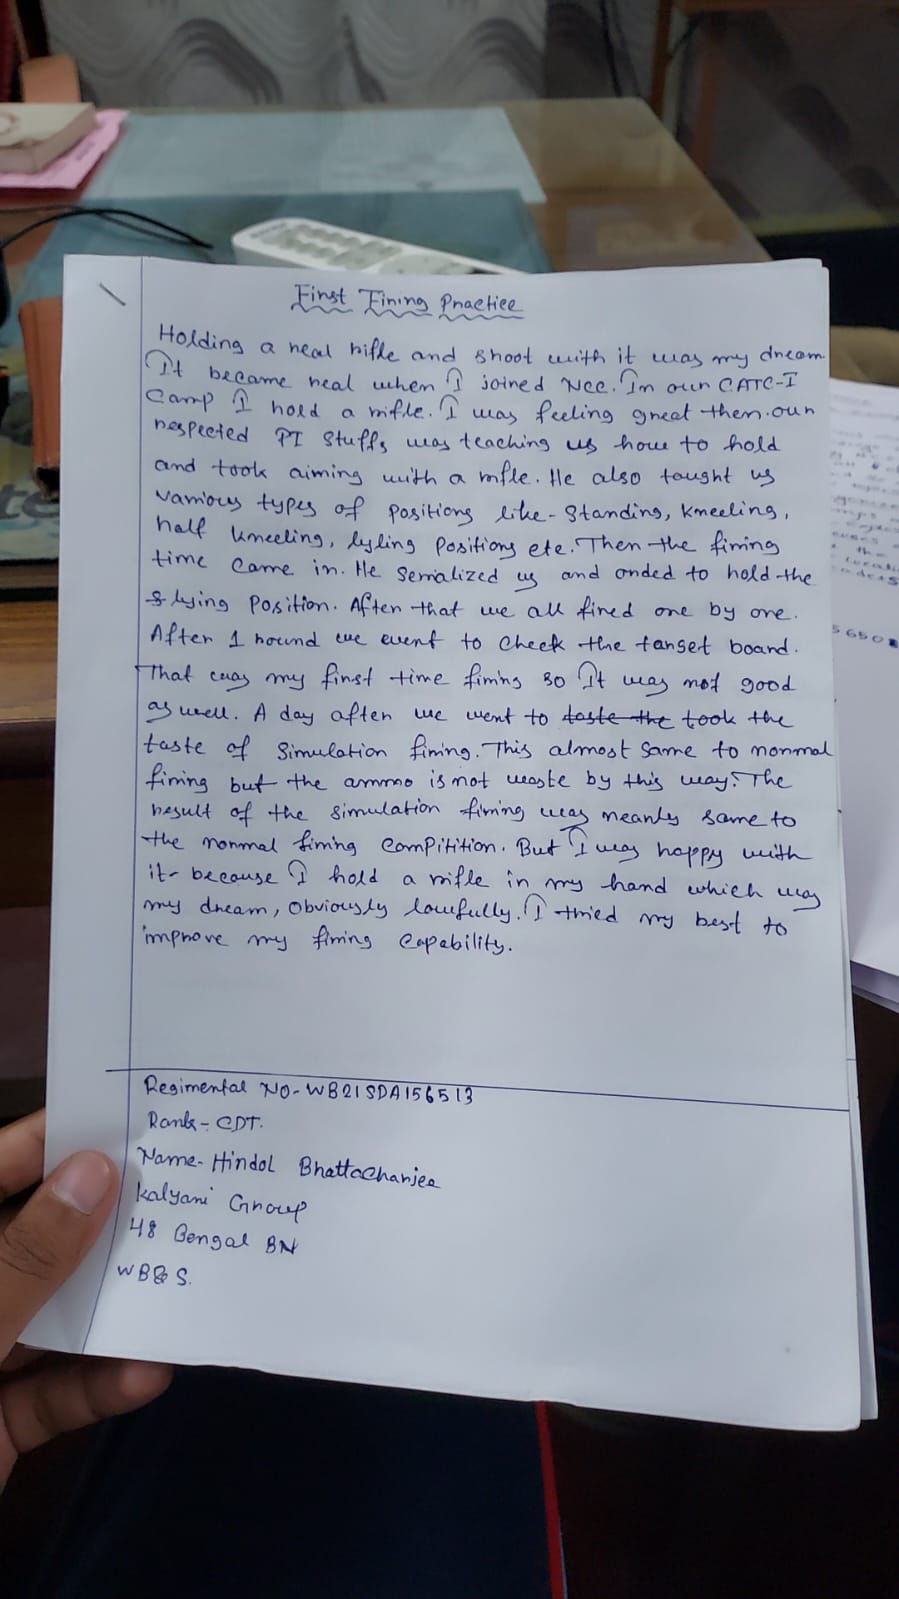 First Firing Practice
Holding a real rifle and shoot with it was my dream.
It became real when I joined NCC. In our CATC-I
Camp I hold a rifle. I was feeling great then. our
respected PI Stuffs was teaching us how to hold
and took aiming with a rifle. He also taught us
various types of positions like- Standing, Kneeling,
half kneeling, lyling Positions etc. Then the firing
time came in. He Serialized us and orded to hold the
lying Position. After that we all fired one by one.
After 1 round we went to check the target board.
That was my first time firing so It was not good
as well. A day after we went to taste the took the
taste of Simulation firing. This almost same to normal
firing but the ammo is not waste by this way. The
result of the simulation firing was nearly same to
the normal firing Compitition. But I was happy with
it- because I hold a rifle in my hand which was
my dream, Obviously lowfully. I tried my best to
improve my firing capability.
Regimental NO- WB21SDA156513
Rank- CDT.
Name- Hindol Bhattacharjee
Kalyani Group
48 Bengal BN
WB& S.
5650